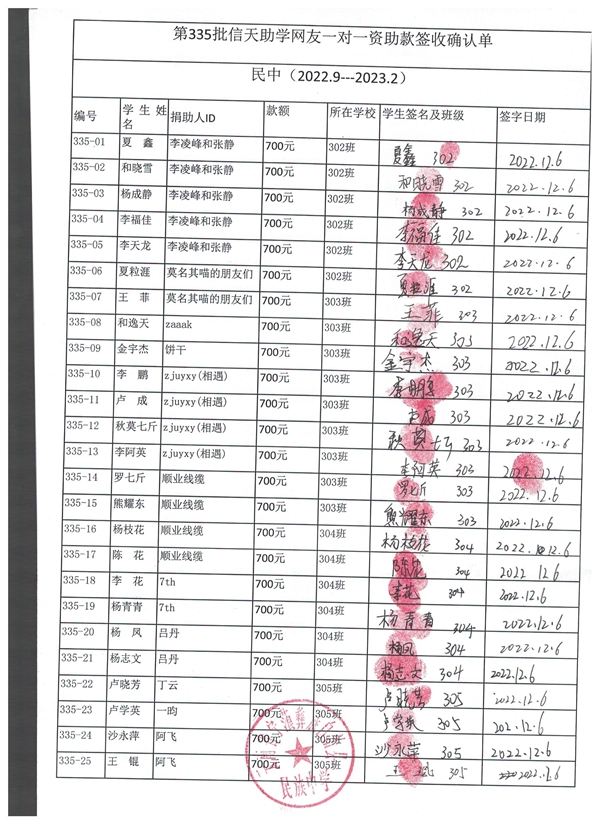 第335批信天助学网友一对一资助款签收确认单
民中（2022.9---2023.2）
编号 学生姓名 捐助人ID 款额 所在学校 学生签名及班级 签字日期
335-01 夏 鑫 李凌峰和张静 700元 302班 夏鑫 302 2022.12.6
335-02 和晓雪 李凌峰和张静 700元 302班 和晓雪 302 2022.12.6
335-03 杨成静 李凌峰和张静 700元 302班 杨成静 302 2022.12.6
335-04 李福佳 李凌峰和张静 700元 302班 李福佳 302 2022.12.6
335-05 李天龙 李凌峰和张静 700元 302班 李天龙 302 2022.12.6
335-06 夏粒涯 莫名其喵的朋友们 700元 302班 夏粒涯 302 2022.12.6
335-07 王 菲 莫名其喵的朋友们 700元 303班 王菲 303 2022.12.6
335-08 和逸天 zaaak 700元 303班 和逸天 303 2022.12.6
335-09 金宇杰 饼干 700元 303班 金宇杰 303 2022.12.6
335-10 李 鹏 zjuyxy(相遇) 700元 303班 李鹏 303 2022.12.6
335-11 卢 成 zjuyxy(相遇) 700元 303班 卢成 303 2022.12.6
335-12 秋莫七斤 zjuyxy(相遇) 700元 303班 秋莫七斤 303 2022.12.6
335-13 李阿英 zjuyxy(相遇) 700元 303班 李阿英 303 2022.12.6
335-14 罗七斤 顺业线缆 700元 303班 罗七斤 303 2022.12.6
335-15 熊耀东 顺业线缆 700元 303班 熊耀东 303 2022.12.6
335-16 杨枝花 顺业线缆 700元 304班 杨枝花 304 2022.12.6
335-17 陈 花 顺业线缆 700元 304班 陈花 304 2022 12.6
335-18 李 花 7th 700元 304班 李花 304 2022.12.6
335-19 杨青青 7th 700元 304班 杨青青 304 2022.12.6
335-20 杨 凤 吕丹 700元 304班 杨凤 304 2022.12.6
335-21 杨志文 吕丹 700元 304班 杨志文 304 2022.12.6
335-22 卢晓芳 丁云 700元 305班 卢晓芳 305 2022.12.6
335-23 卢学英 一昀 700元 305班 卢学英 305 202.12.6
335-24 沙永萍 阿飞 700元 305班 沙永萍 305 2022.12.6
335-25 王 锟 阿飞 700元 305班 王锟 305 2022.12.6
民族中学